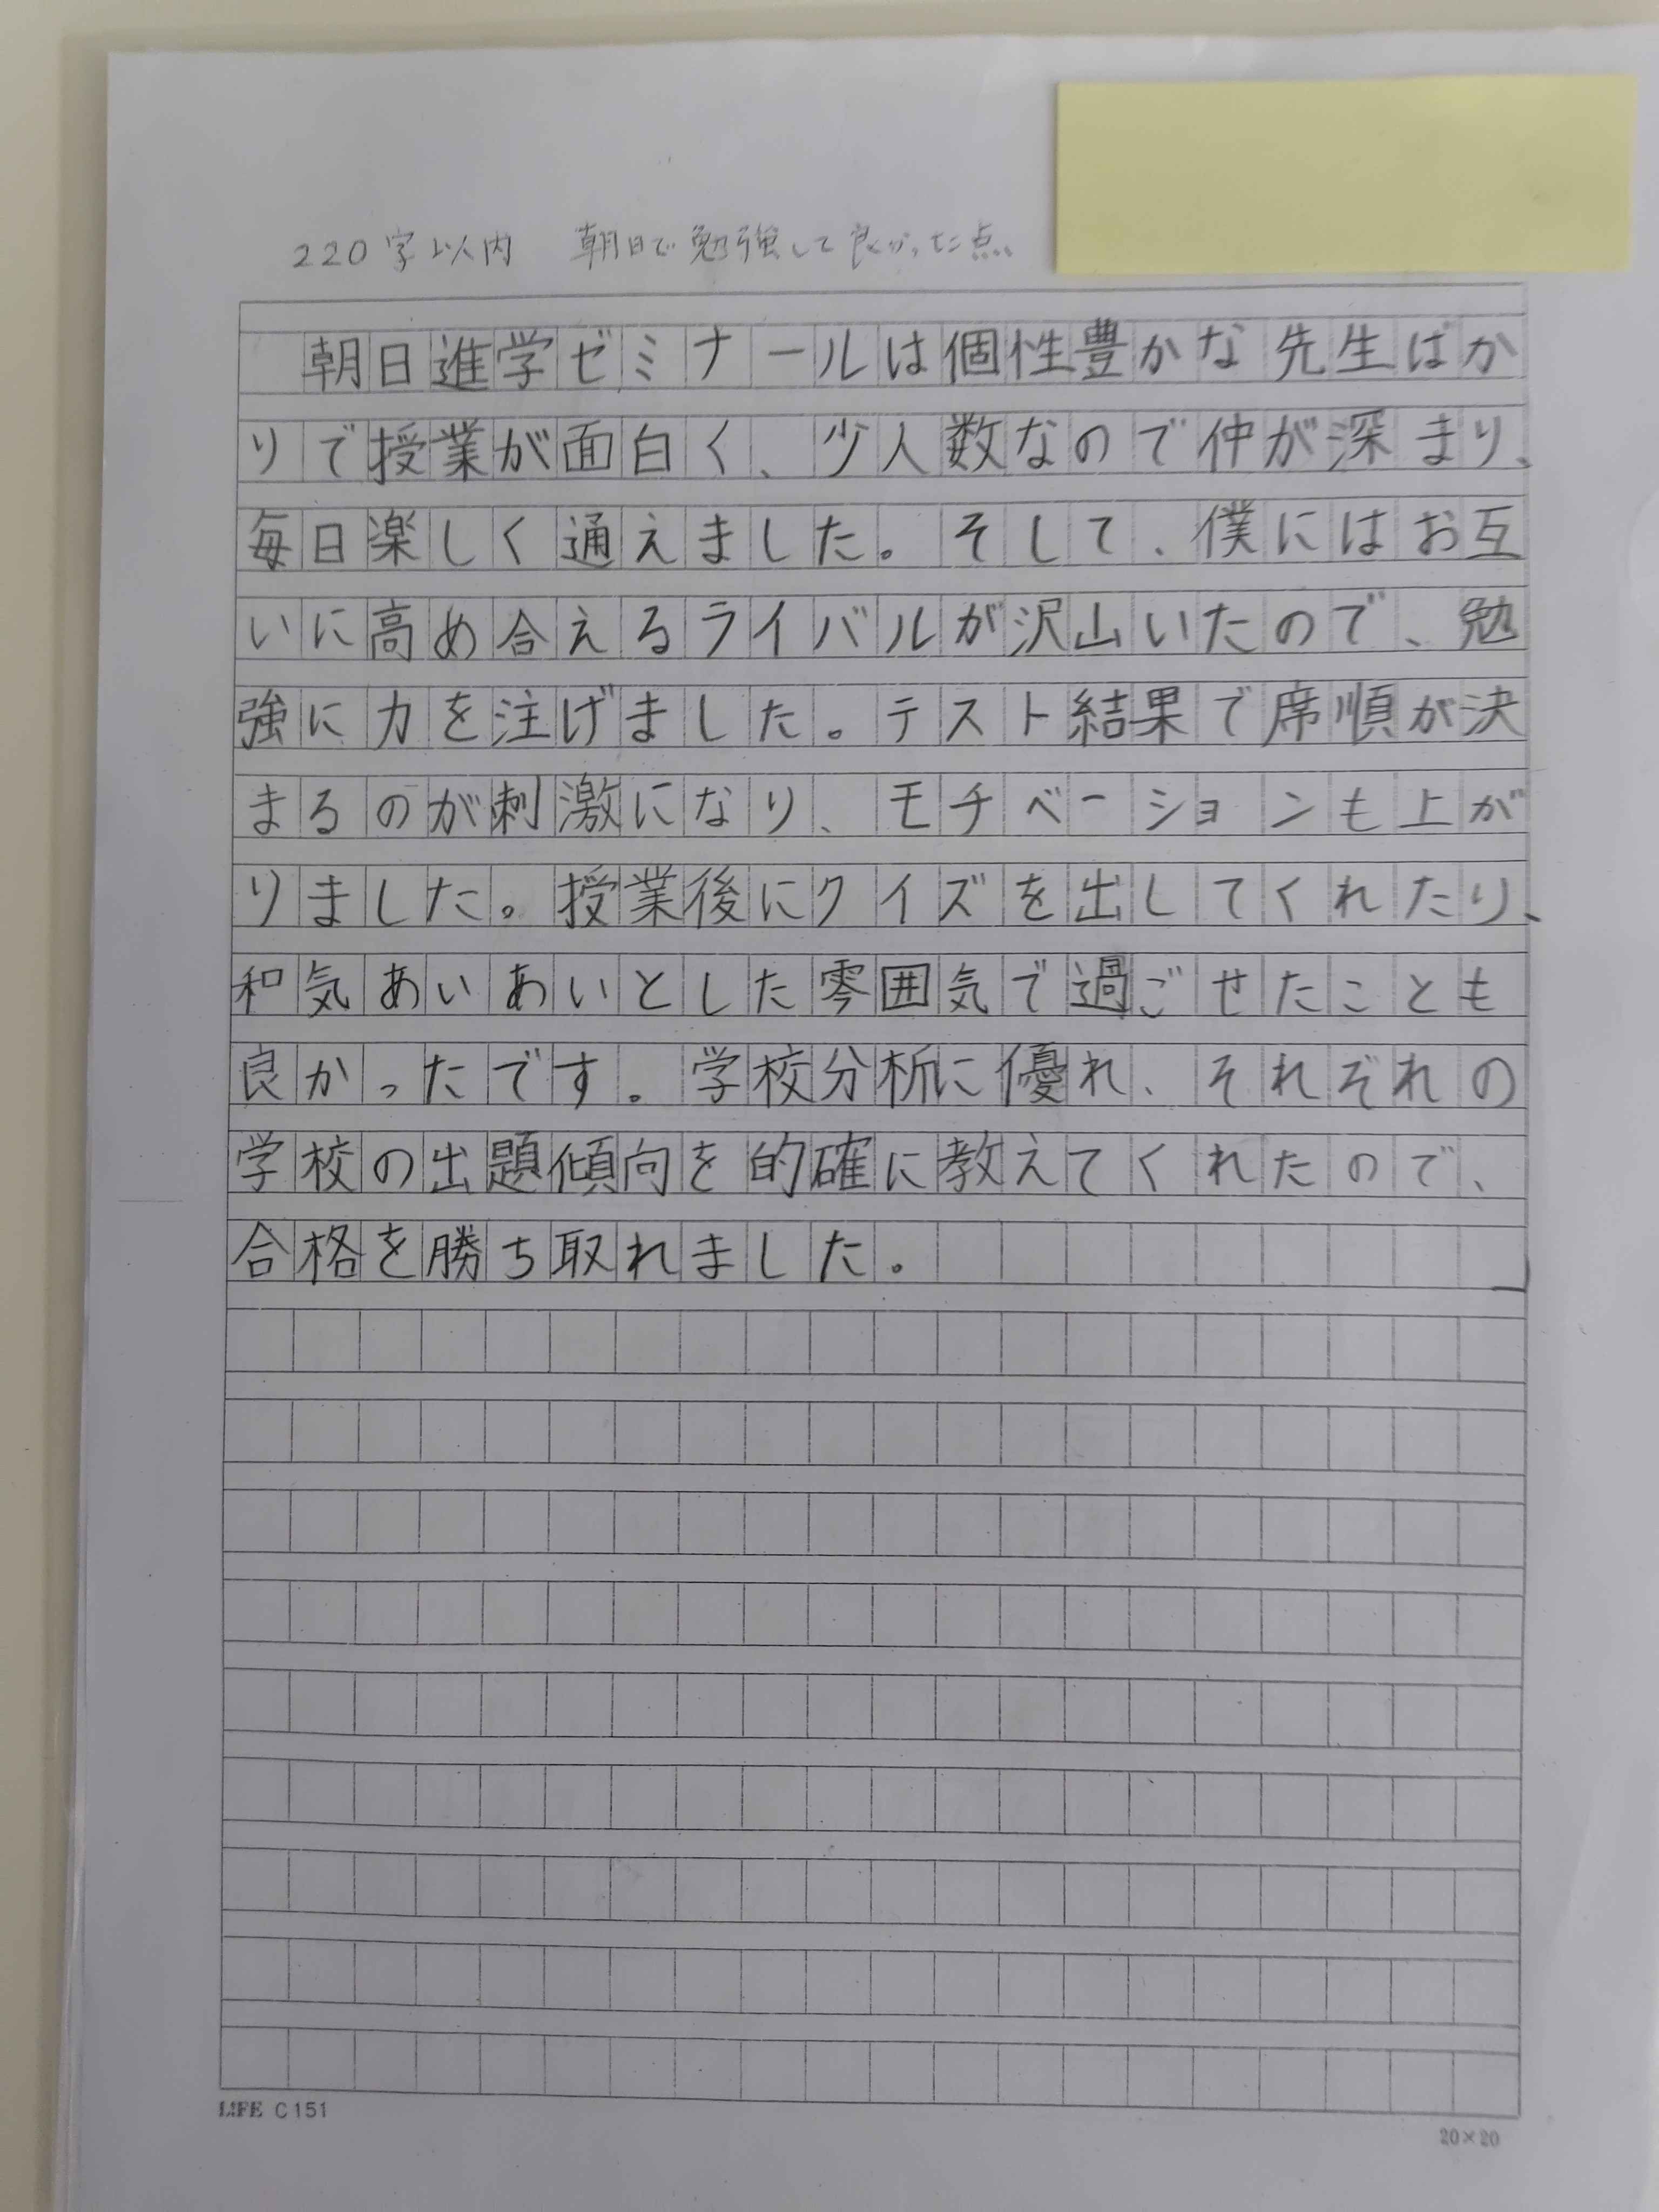 220字以内　朝日で勉強して良かった点。
朝日進学ゼミナールは個性豊かな先生ばか
りで授業が面白く、少人数なので仲が深まり、
毎日楽しく通えました。そして、僕にはお互
いに高め合えるライバルが沢山いたので、勉
強に力を注げました。テスト結果で席順が決
まるのが刺激になり、モチベーションも上が
りました。授業後にクイズを出してくれたり、
和気あいあいとした雰囲気で過ごせたことも
良かったです。学校分析に優れ、それぞれの
学校の出題傾向を的確に教えてくれたので、
合格を勝ち取れました。
LIFE C151
20×20